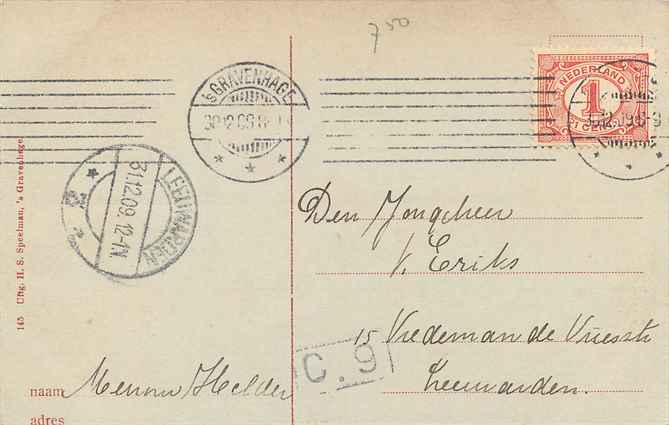 750
'SGRAVENHAGE
30.12.09.8-9N
NEDERLAND
1
1 CENT
LEEUWARDEN
31.12.09.12-1N.
Den Jongeheer
J. Eriks
15 Vredeman de Vriesstr
Leeuwarden.
C.9
naam Menno Helder
adres
145 Uitg. H. S. Speelman, 's Gravenhage